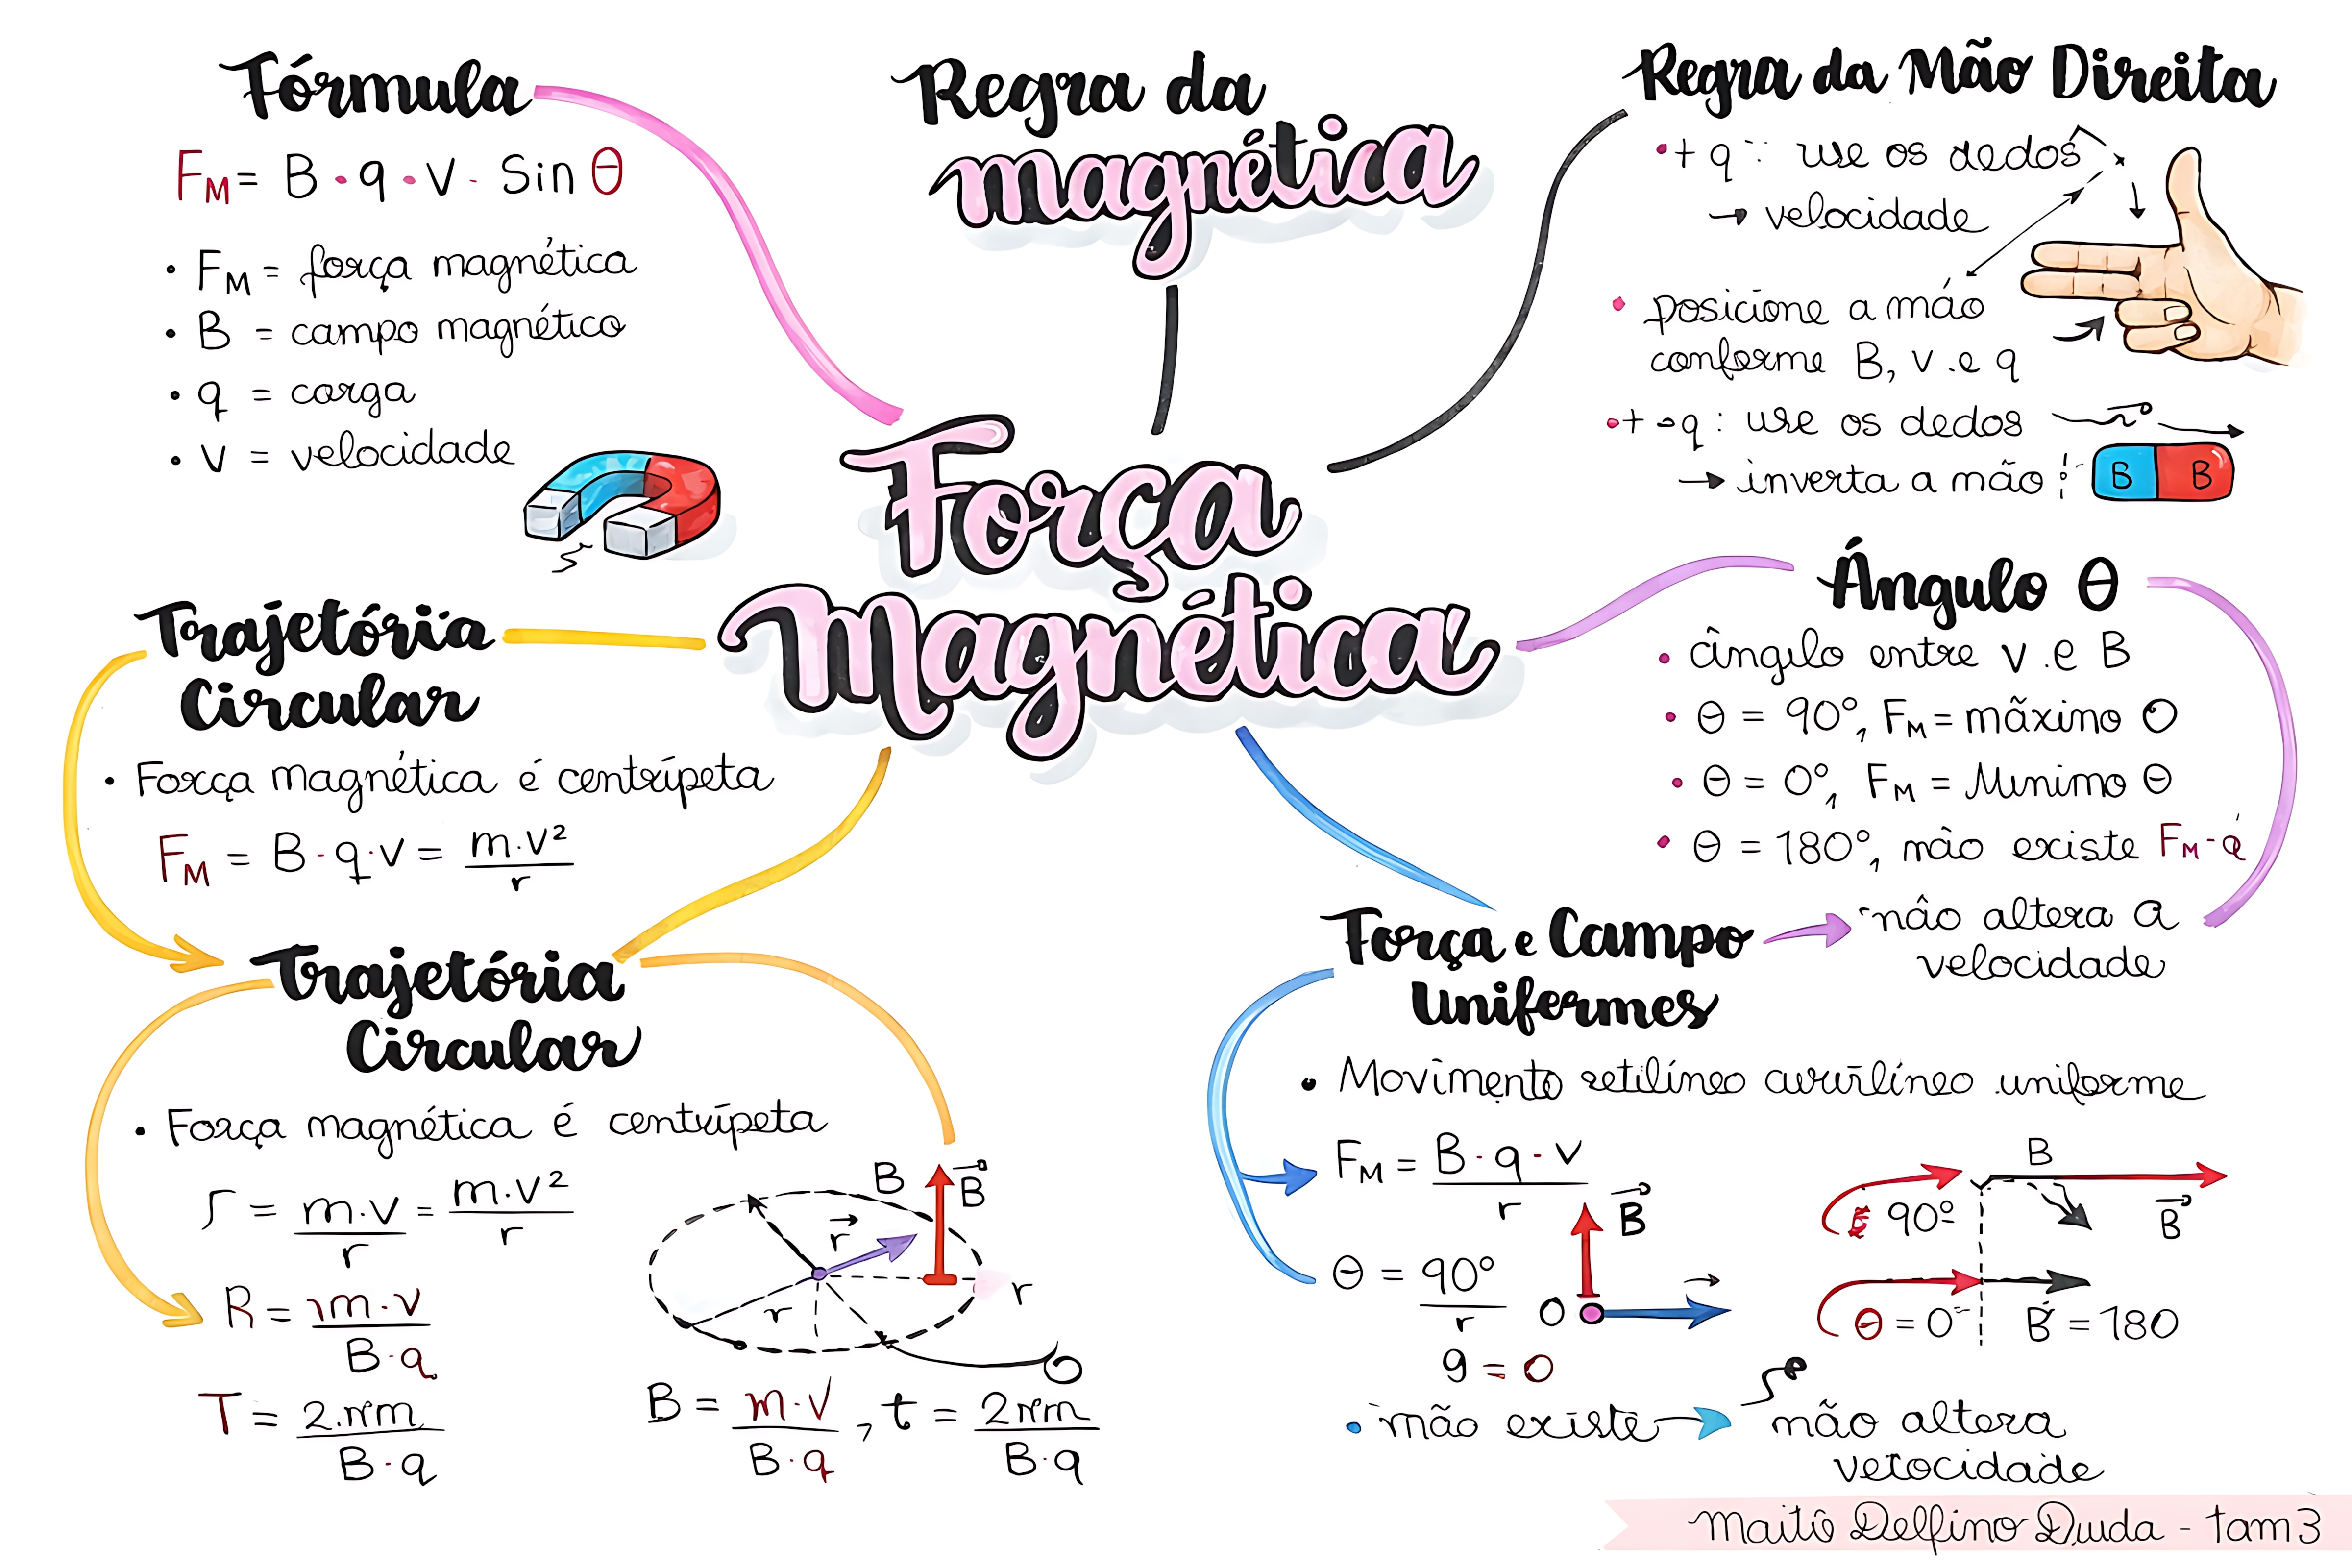 Fórmula
F_M = B · q · v · Sin θ
• F_M = força magnética
• B = campo magnético
• q = carga
• v = velocidade
Regra da
magnética
Regra da Mão Direita
• + q : use os dedos
→ velocidade
• posicione a mão
conforme B, v e q
• + - q : use os dedos
→ inverta a mão
B B
Força
Magnética
Ângulo θ
• ângulo entre v e B
• θ = 90°, F_M = mãximo O
• θ = 0°, F_M = Minimo θ
• θ = 180°, mão existe F_M - q
não altera a
velocidade
Trajetória
Circular
• Força magnética é centrípeta
F_M = B · q · v = m·v² / r
Trajetória
Circular
• Força magnética é centrípeta
r = m·v / r = m·v² / r
R = m·v / B·q
T = 2·πm / B·q
B B
r r r
B = m·v / B·q , t = 2πm / B·q
Força e Campo
Unifermes
• Movimento retilíneo curvilíneo uniforme
F_M = B · q · v / r
θ = 90° / r
g = 0
B
O
B
90° B
θ = 0° B = 180
• mão existe → mão altera
vetocidade
Maitô Delfino Duda - tam3